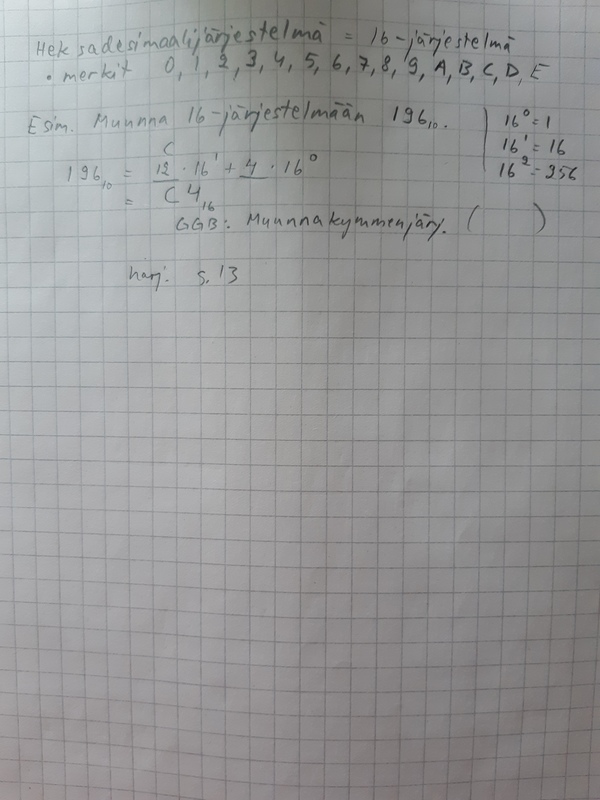 Heksadesimaalijärjestelmä = 16-järjestelmä
• merkit 0, 1, 2, 3, 4, 5, 6, 7, 8, 9, A, B, C, D, E
Esim. Muunna 16-järjestelmään 196₁₀.
16⁰ = 1
16¹ = 16
16² = 256
C
196₁₀ = 12 · 16¹ + 4 · 16⁰
= C4₁₆
GGB: Muunnakymmenjärj. ( )
harj. s. 13